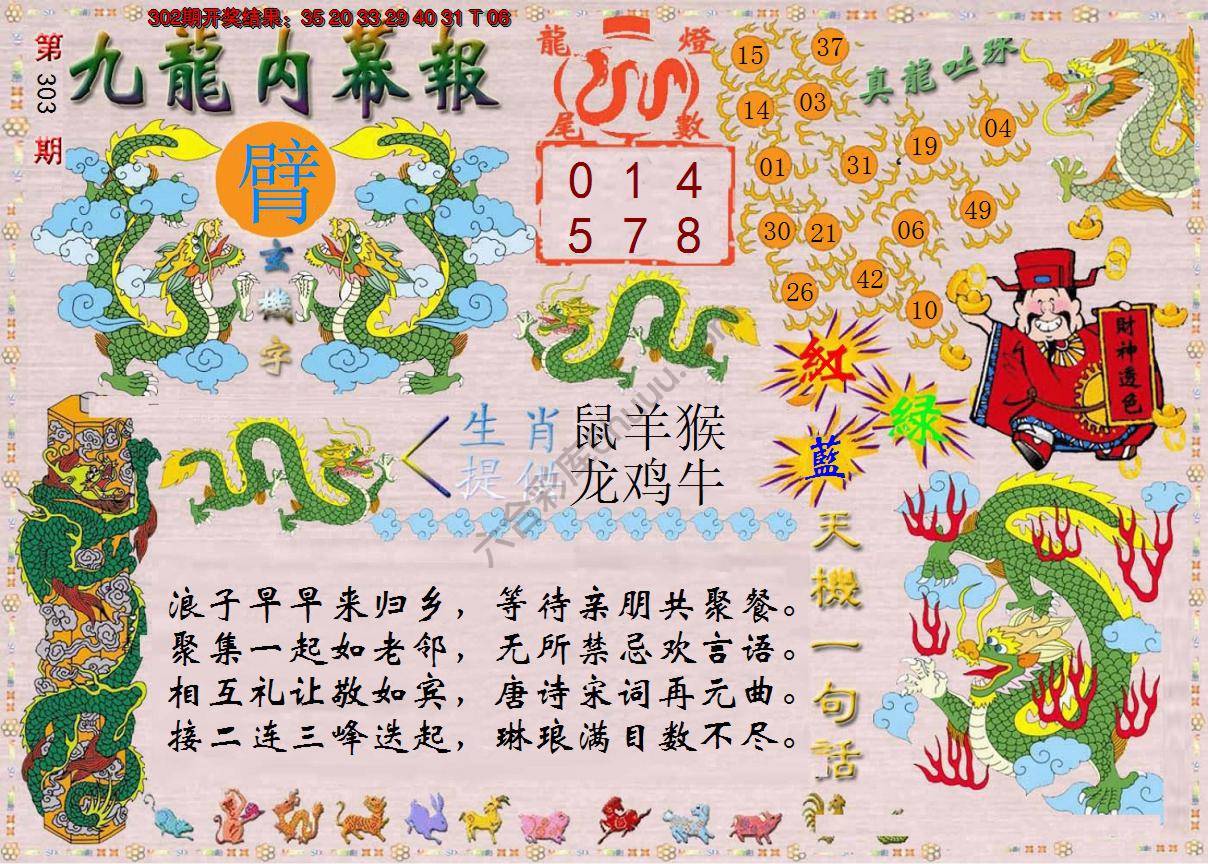 302期开奖结果：35 20 33 29 40 31 T 06
第303期
九龍内幕報
臂
玄機字
龍燈
尾數
0 1 4
5 7 8
真龍吐珠
15
37
14
03
19
04
01
31
49
30
21
06
26
42
10
財神透色
紅
綠
藍
生肖 鼠羊猴
提供 龙鸡牛
天機一句話
浪子早早来归乡，等待亲朋共聚餐。
聚集一起如老邻，无所禁忌欢言语。
相互礼让敬如宾，唐诗宋词再元曲。
接二连三峰迭起，琳琅满目数不尽。